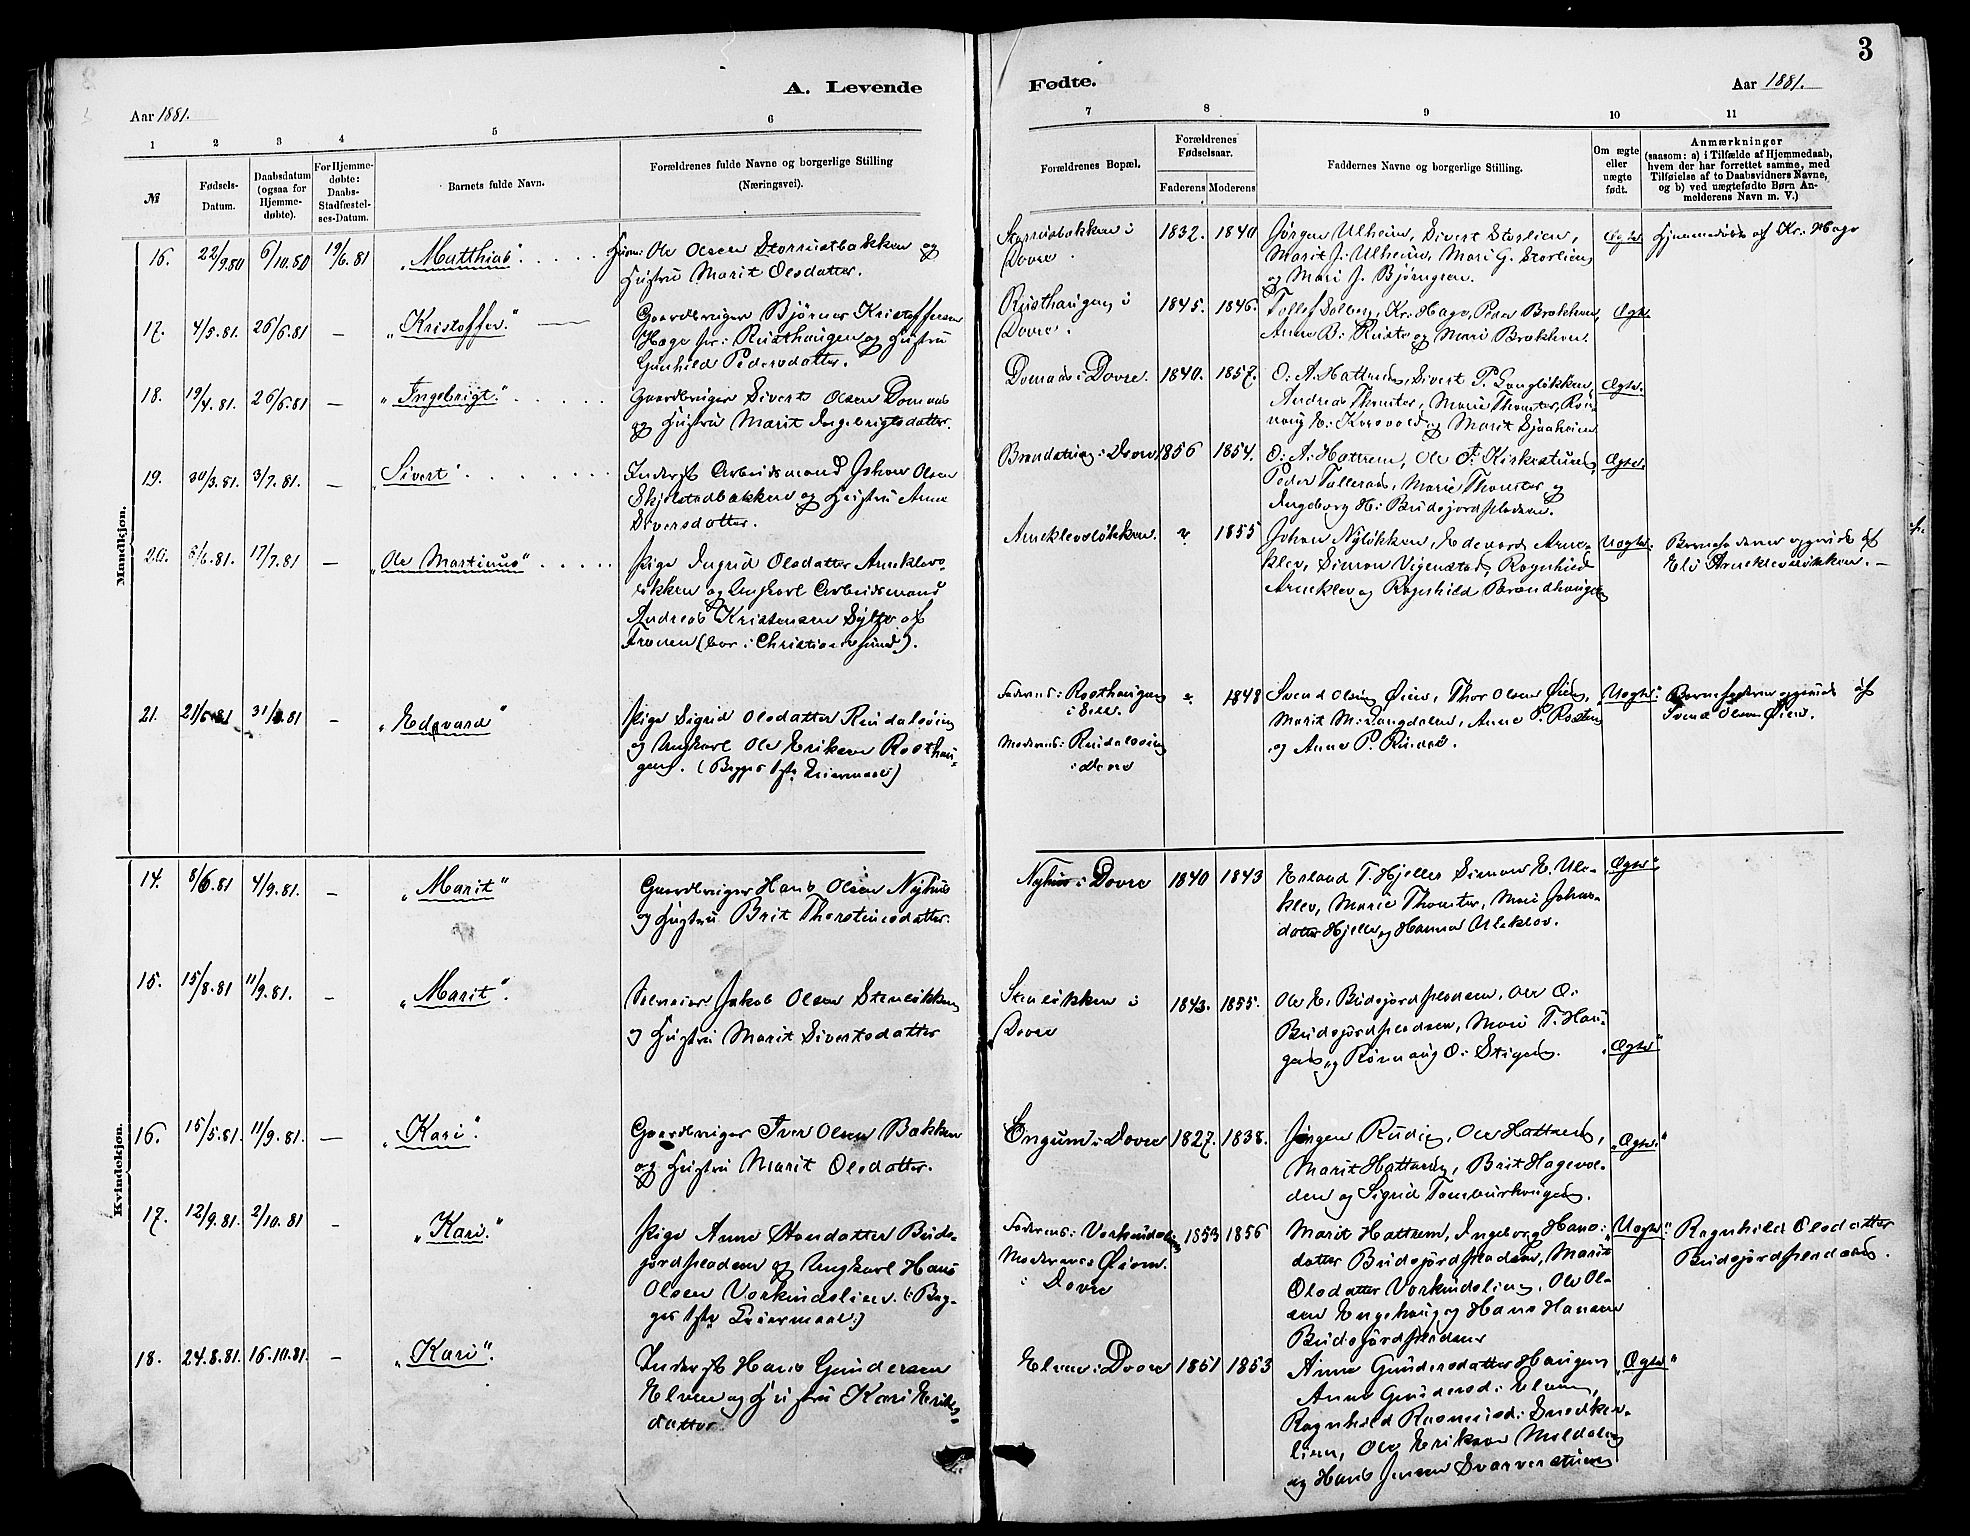 3
A. Levende
Fødte.
Aar 1881.
Aar 1881.
1 2 3 4 5 6
7 8 9 10 11
№
Fødsels-
Datum.
Daabsdatum
(ogsaa for
Hjemme-
døbte).
For Hjemme-
døbte:
Daabs-
Stadfæstel-
ses-Datum.
Barnets fulde Navn.
Forældrenes fulde Navne og borgerlige Stilling
(Næringsvei).
Forældrenes Bopæl.
Forældrenes
Fødselsaar.
Faderens Moderens
Faddernes Navne og borgerlige Stilling.
Om ægte
eller
uægte
født.
Anmærkninger
(saasom: a) i Tilfælde af Hjemmedaab,
hvem der har forrettet samme, med
Tilføielse af to Daabsvidners Navne,
og b) ved uægtefødte Børn An-
melderens Navn m. V.)
Mandkjøn.
16. 22/9.80 6/10.80 19/6.81 „Matthias“.
Ole Olsen Storrustbakken og
Hustru Marit Olsdatter.
Storrustbakken i
Dovre.
1832. 1840
Jørgen Ulheim, Sivert Storlien,
Marit J. Ulheim, Mari G. Storlien
og Mari J. Bjørngren.
Ægte
Hjemmedøbt af Kr. Hage
17. 4/5.81. 26/6.81 — „Kristoffer.“
Gaardbruger Bjørner Kristoffersen
Hage fr: Rusthaugen og Hustru
Gunhild Pedersdatter.
Rusthaugen i
Dovre.
1845. 1846.
Tollef Solberg, Kr. Hage, Peder Brækken,
Anne B. Ruste og Mari Brækken.
Ægte
18. 19/4.81. 26/6.81 — „Ingebrigt.“
Gaardbruger Sivert Olsen Domaas
og Hustru Marit Ingebrigtsdatter.
Domaas i Dovre.
1840. 1857.
O. A. Hattrem, Sivert P.
Andreas Thomter, Marie Thomter, Røn-
naug E. og Marit
Ægte.
19. 30/3.81. 3/7.81. — „Sivert“
Inderst Arbeidsmand Johan Olsen
Skjelstadbakken og Hustru Anne
Siversdatter.
i Dovre.
1856 1854.
O. A. Hattrem, Ole
Peder Talleraas, Marie Thomter og
Ingeborg H. Budsjordpladsen.
Ægte.
20. 6/6.81. 17/7.81 — „Ole Martinus“
Pige Ingrid Olsdatter Arneklevs-
løkken og Ungkarl Arbeidsmand
Andreas Kristensen Sylte af
(bor i Christiansund).
Arneklevsløkken.
? 1855
Johan Nyløkken, Edevard Arne-
klev, Simon Vigenstad, Ragnhild
Arneklev og Ragnhild Brændhaugen
Uægte.
Barnefaderen opgivet af
Eli Arneklevsløkken. —
21. 21/6.81 31/8.81 — „Edevard“
Pige Sigrid Olsdatter
og Ungkarl Ole Eriksen Rosthau-
gen. (Begges 1ste Leiermaal)
Faderens: Rosthaugen
i Sell.
Moderens:
i Dovre
? 1848
Svend Olsen Øien, Thor Olsen Øien,
Marit M. Langdalen, Anne P. Rosten
og Anne P.
Uægte.
Barnefaderen opgivet af
Svend Olsen Øien.
Kvindekjøn.
14. 8/6.81 4/9.81. — „Marit“
Gaardbruger Hans Olsen Nyhus
og Hustru Brit Thorstensdatter.
Nyhus i Dovre
1840 1843
Erland T. Hjelle, Simon E. Ule-
klev, Marie Thomter, Mari Johans-
datter Hjelle og Hanna Uleklev.
„Ægte“
15. 15/8.81 11/9.81. — „Marit“.
Selveier Jakob Olsen Stenløkken
og Hustru Marit Sivertsdatter
Stenløkken i
Dovre
1843. 1855.
Ole E. Budsjordpladsen, Ole O.
Budsjordpladsen, Mari T. Hau-
gen og Rønnaug O. Stigen.
„Ægte“
16. 15/5.81. 11/9.81. — „Kari“.
Gaardbruger Iver Olsen Bakken
og Hustru Marit Olsdatter.
Engum i Dovre
1827. 1838.
Jørgen Rudi, Ole Hattrem,
Marit Hattrem, Brit Hagevol-
den og Sigrid
„Ægte“
17. 12/9.81. 2/10.81 — „Kari.“
Pige Anne Hansdatter Buds-
jordpladsen og Ungkarl Hans
Olsen Vorkinslien. (: Beg-
ges 1ste Leiermaal:)
Faderens: Vorkinslien
Moderens Øien
i Dovre
1853 1856
Marit Hattrem, Ingeborg Hans-
datter Budsjordpladsen, Marit
Olsdatter Vorkinslien, Ole Ol-
sen Engehaug og Hans Hansen
Budsjordpladsen
„Uægte“
Ragnhild Olsdatter
Budsjordpladsen.
18. 24.8.81. 16.10.81. — „Kari“.
Inderst Hans Gundersen
Elven og Hustru Kari Eriks-
datter
Elven i Dovre
1851 1853
Anne Gundersdatter Haugen,
Anne Gundersd. Elven,
Ragnhild Rasmusd. Snedker-
lien, Ole Eriksen
og Hans Jensen
„Ægte“